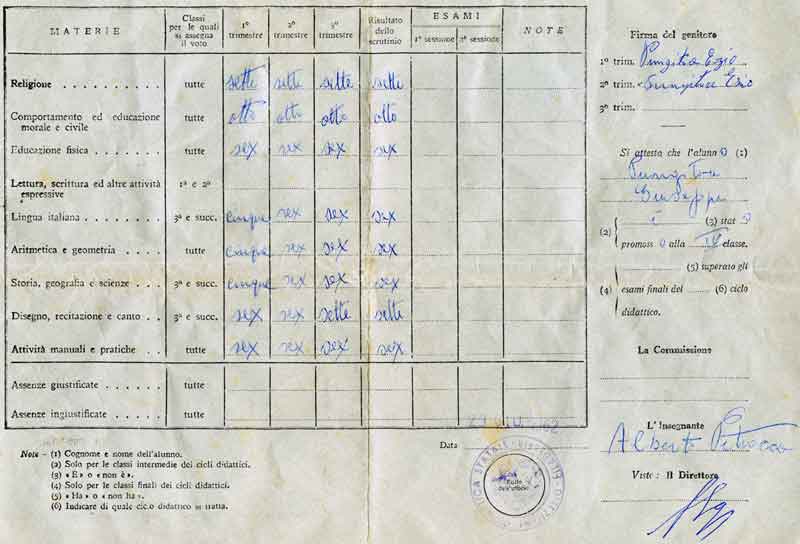 MATERIE Classi per le quali si assegna il voto 1º trimestre 2º trimestre 3º trimestre Risultato dello scrutinio ESAMI 1ª sessione 2ª sessione NOTE
Religione . . . . . . . . . . tutte sette sette sette sette
Comportamento ed educazione morale e civile tutte otto otto otto otto
Educazione fisica . . . . . . . tutte sex sex sex sex
Lettura, scrittura ed altre attività espressive 1ª e 2ª
Lingua italiana . . . . . . . . 3ª e succ. cinque sex sex sex
Aritmetica e geometria . . . . tutte cinque sex sex sex
Storia, geografia e scienze . . . 3ª e succ. cinque sex sex sex
Disegno, recitazione e canto . . 3ª e succ. sex sex sette sette
Attività manuali e pratiche . . tutte sex sex sex sex
Assenze giustificate . . . . . . tutte
Assenze ingiustificate . . . . . tutte
Note - (1) Cognome e nome dell'alunno.
(2) Solo per le classi intermedie dei cicli didattici.
(3) « È » o « non è ».
(4) Solo per le classi finali dei cicli didattici.
(5) « Ha » o « non ha ».
(6) Indicare di quale ciclo didattico si tratta.
Data
Bollo dell'ufficio
Firma del genitore
1º trim.
2º trim.
3º trim.
Si attesta che l'alunno (1)
Giuseppe
(2) è (3) stato
promosso alla IV classe.
(5) superato gli
(4) esami finali del (6) ciclo
didattico.
La Commissione
L'Insegnante
Alberto
Visto: Il Direttore